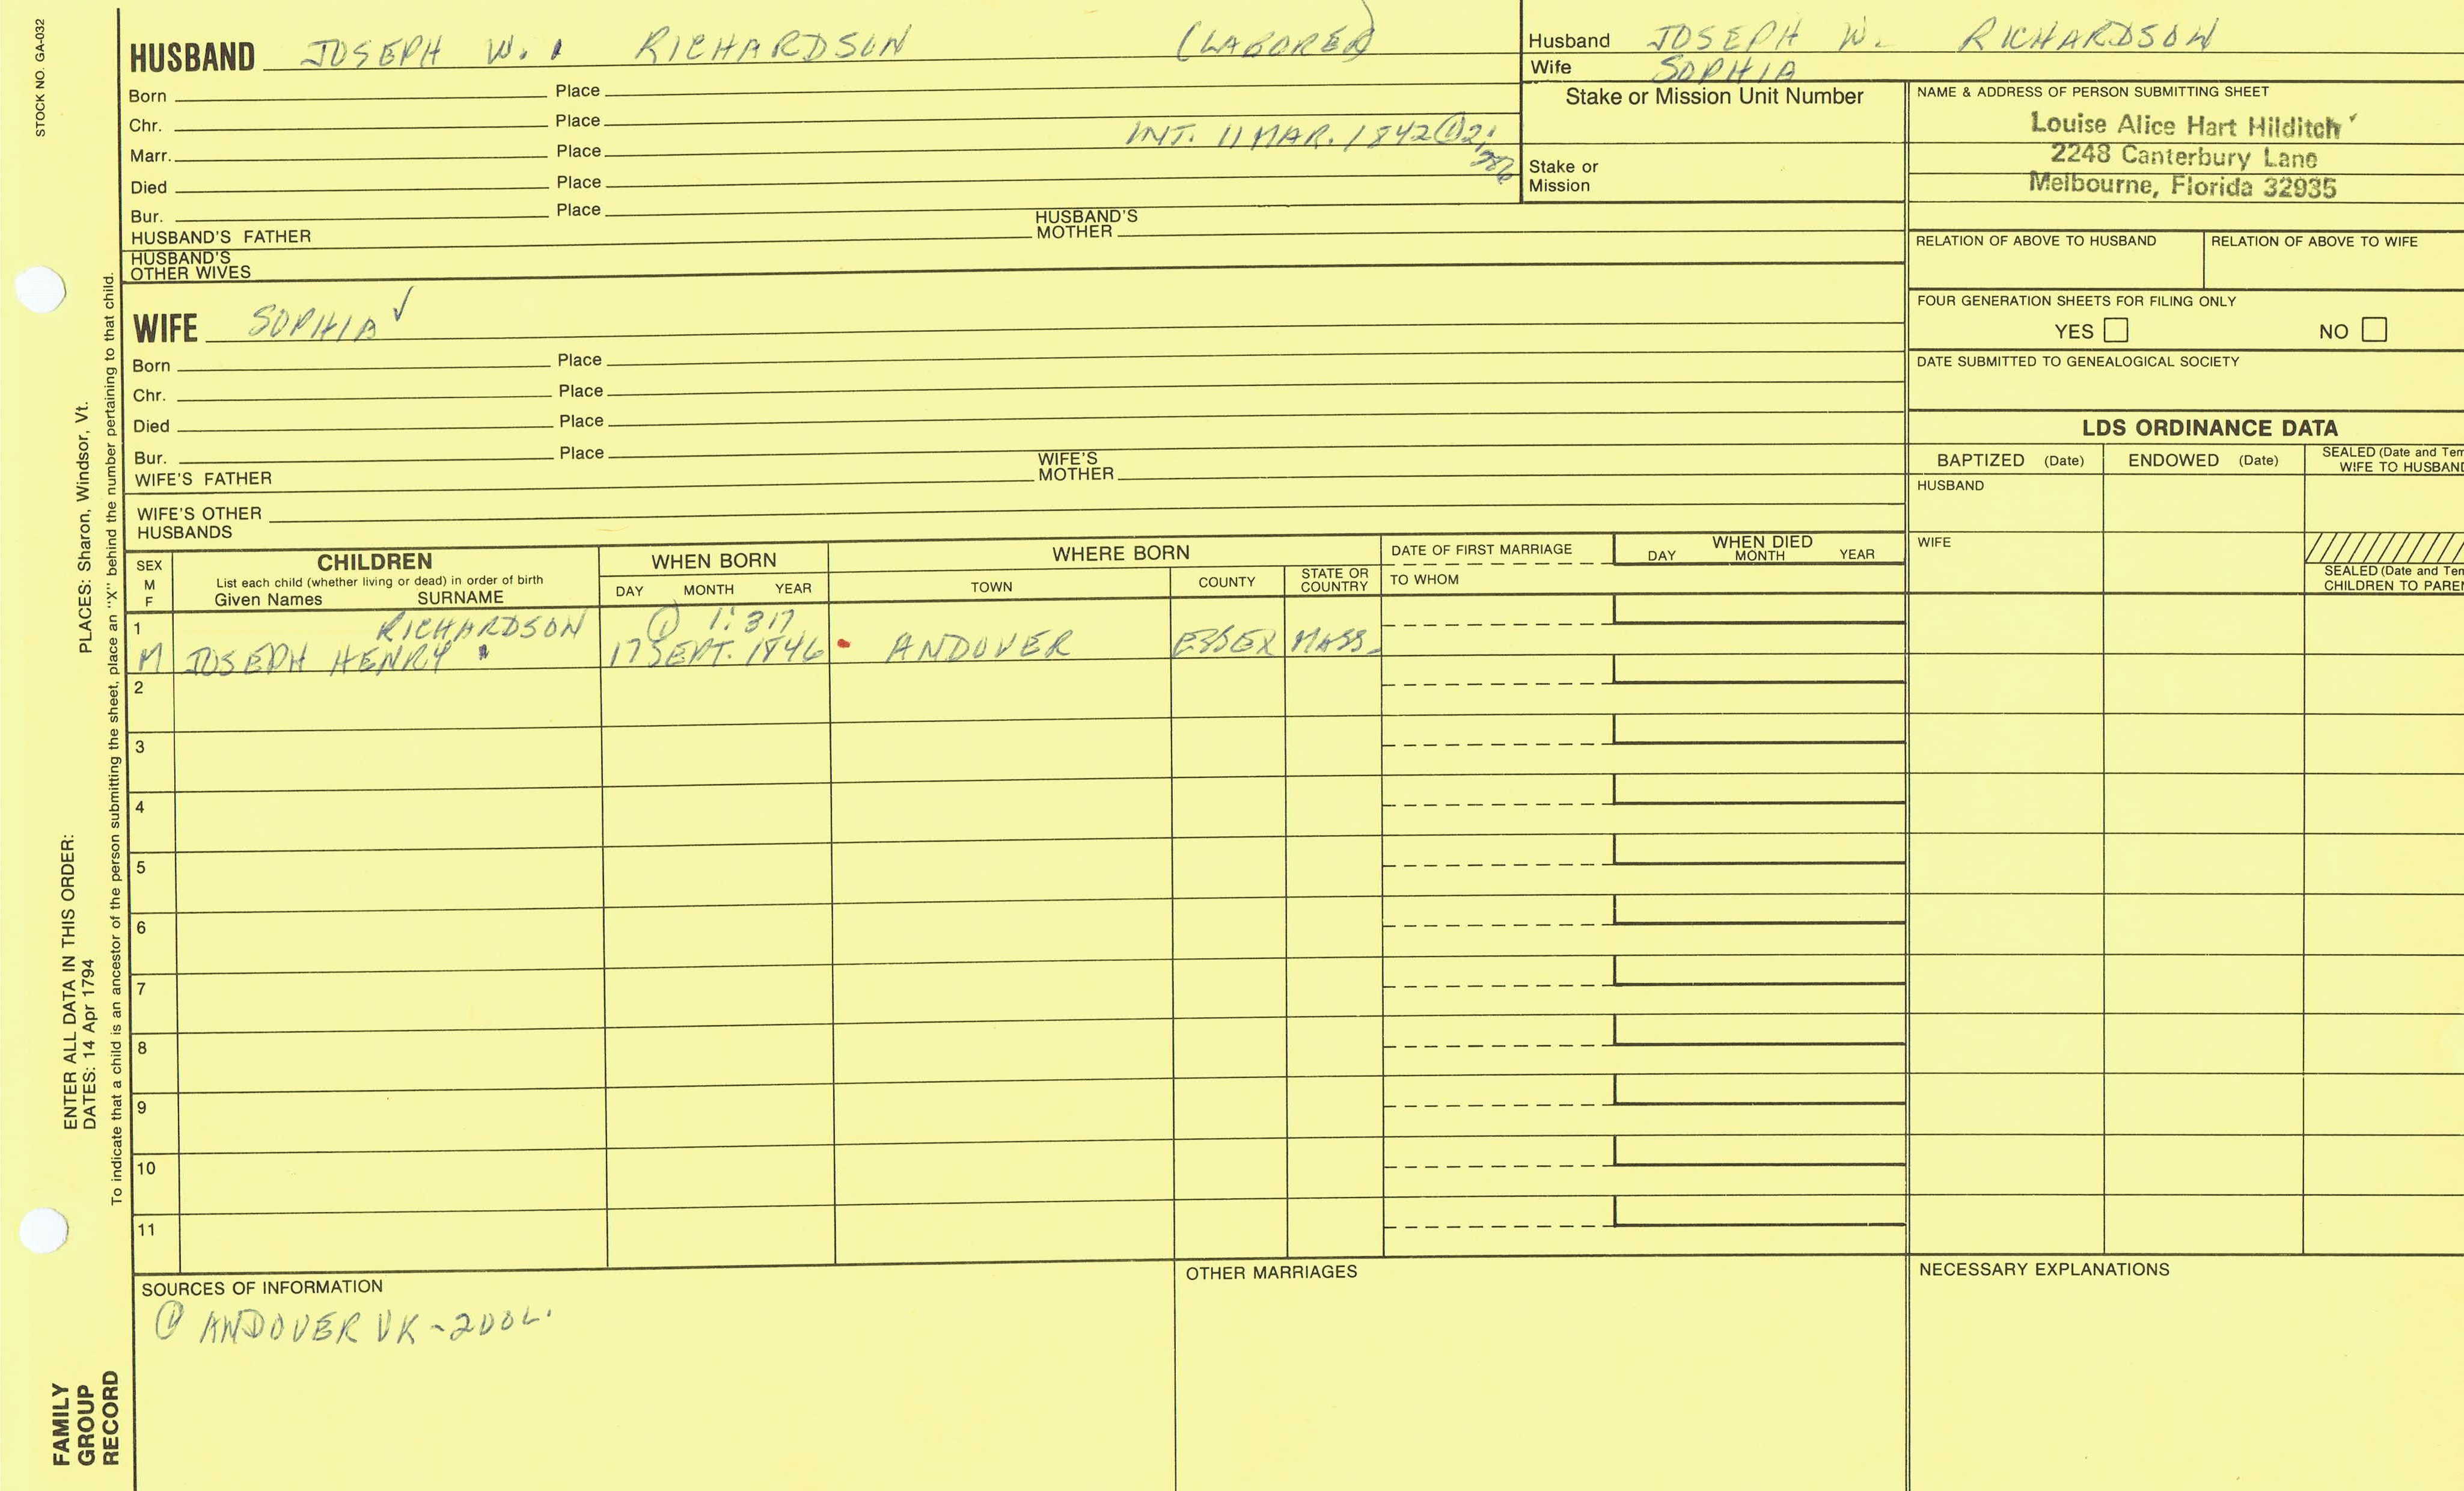 STOCK NO. GA-032
HUSBAND JOSEPH W. RICHARDSON (LABORER)
Born Place
Chr. Place
Marr. Place INT. 11 MAR. 1842 ① 2:
Died Place
Bur. Place
HUSBAND'S FATHER HUSBAND'S MOTHER
HUSBAND'S OTHER WIVES
Husband JOSEPH W. RICHARDSON
Wife SOPHIA
Stake or Mission Unit Number
Stake or
Mission
NAME & ADDRESS OF PERSON SUBMITTING SHEET
Louise Alice Hart Hilditch
2248 Canterbury Lane
Melbourne, Florida 32935
RELATION OF ABOVE TO HUSBAND RELATION OF ABOVE TO WIFE
FOUR GENERATION SHEETS FOR FILING ONLY
YES NO
DATE SUBMITTED TO GENEALOGICAL SOCIETY
WIFE SOPHIA ✓
Born Place
Chr. Place
Died Place
Bur. Place
WIFE'S FATHER WIFE'S MOTHER
WIFE'S OTHER
HUSBANDS
LDS ORDINANCE DATA
BAPTIZED (Date) ENDOWED (Date) SEALED (Date and Tem
WIFE TO HUSBAN
HUSBAND
WIFE
SEALED (Date and Tem
CHILDREN TO PARE
SEX
M
F
CHILDREN
List each child (whether living or dead) in order of birth
Given Names SURNAME
WHEN BORN
DAY MONTH YEAR
WHERE BORN
TOWN COUNTY STATE OR COUNTRY
DATE OF FIRST MARRIAGE
TO WHOM
WHEN DIED
DAY MONTH YEAR
1 RICHARDSON ① 1:317
M JOSEPH HENRY 17 SEPT. 1846 ANDOVER ESSEX MASS.
2
3
4
5
6
7
8
9
10
11
SOURCES OF INFORMATION
① ANDOVER
OTHER MARRIAGES
NECESSARY EXPLANATIONS
PLACES: Sharon, Windsor, Vt.
ENTER ALL DATA IN THIS ORDER:
DATES: 14 Apr 1794
To indicate that a child is an ancestor of the person submitting the sheet, place an "X" behind the number pertaining to that child.
FAMILY
GROUP
RECORD